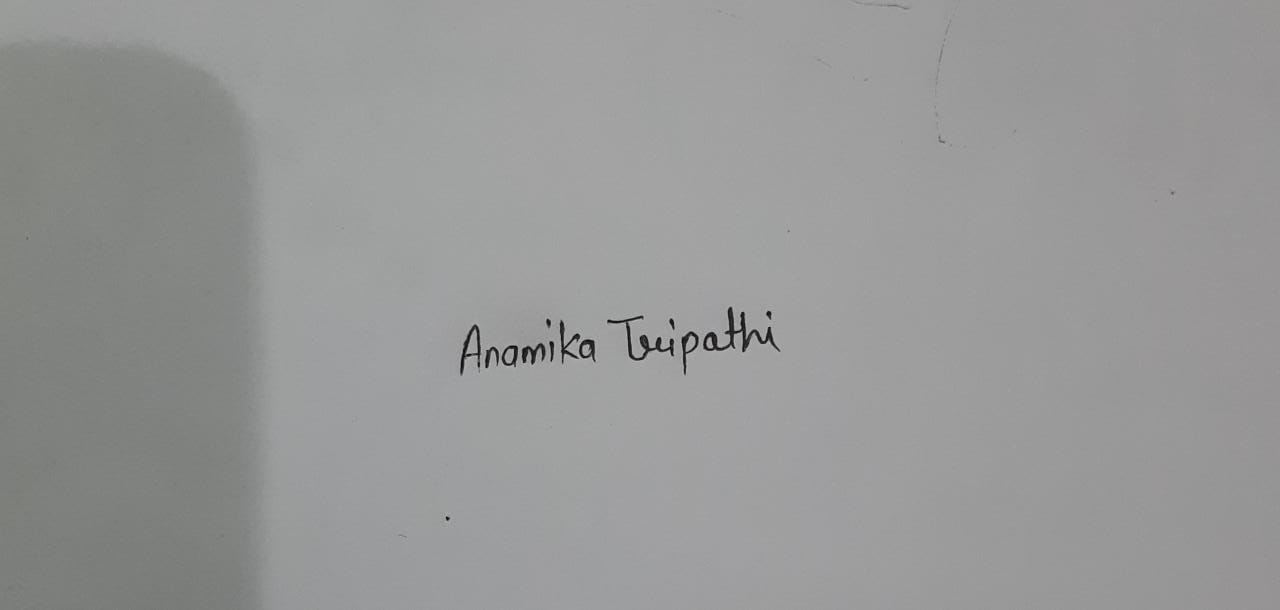 Anamika Tripathi